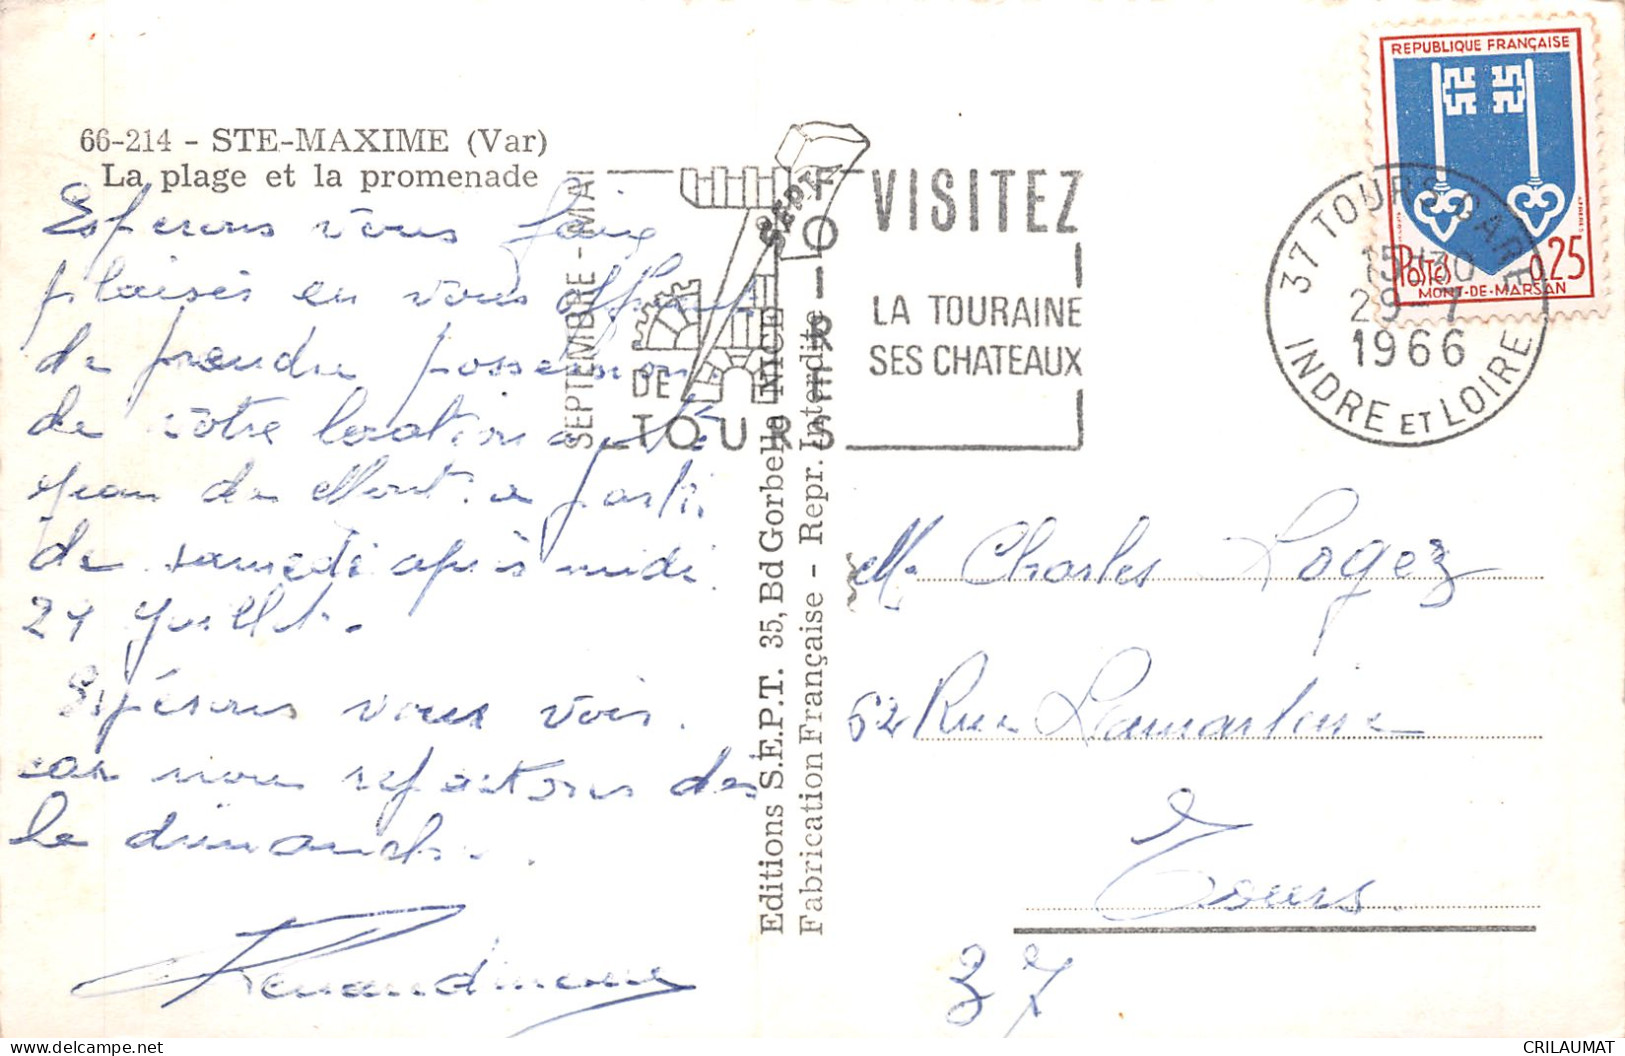 66-214 - STE-MAXIME (Var)
La plage et la promenade
Espérons vous faire
plaisir en vous offrant
de prendre possession
de votre location à St
Jean de Mont. à partir
de samedi après midi
29 Juillet.
Espérons vous voir.
car nous repartons dès
le dimanche.
Editions S.E.P.T. 35, Bd Gorbella NICE
Fabrication Française - Repr. Interdite
SEPTEMBRE - MAI
SEPT
FOIRE
DE
TOURS
VISITEZ
LA TOURAINE
SES CHATEAUX
REPUBLIQUE FRANÇAISE
POSTES
0,25
MONT-DE-MARSAN
37 TOURS GARE
15H30
29-7
1966
INDRE ET LOIRE
Mr Charles Logez
62 Rue Lamartine
Tours.
37
CRILAUMAT